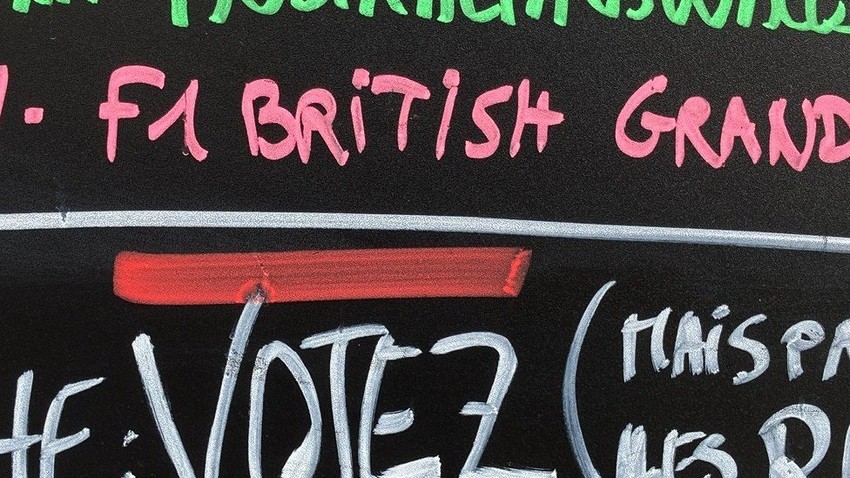 . F1 BRiTiSH GRAND
HE: VOTEZ (MAiS PA
LES